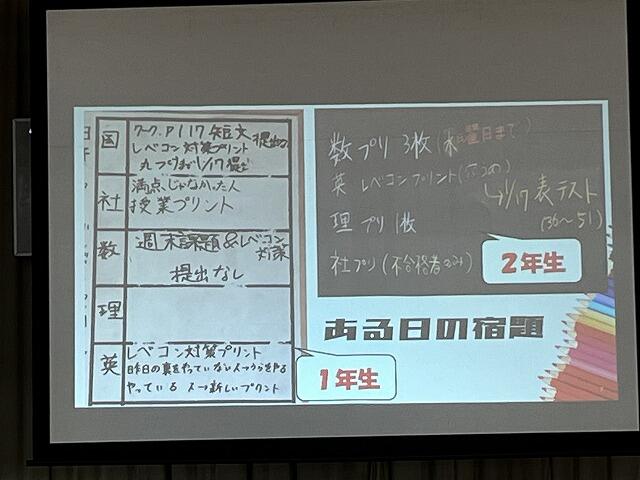 国
ワーク.P117 短文 提出
レベコン対策プリント
丸つけまで 1/17 提出
社
満点じゃなかった人
授業プリント
数
週末課題&レベコン対策
提出なし
理
英
レベコン対策プリント
昨日の裏をやっていない人→うらをやる
やっている人→新しいプリント
1年生
数プリ 3枚(木曜日まで)
英 レベコンプリント
↳1/17 表テスト
(36〜51)
理 プリ 1枚
社プリ(不合格者のみ)
2年生
ある日の宿題